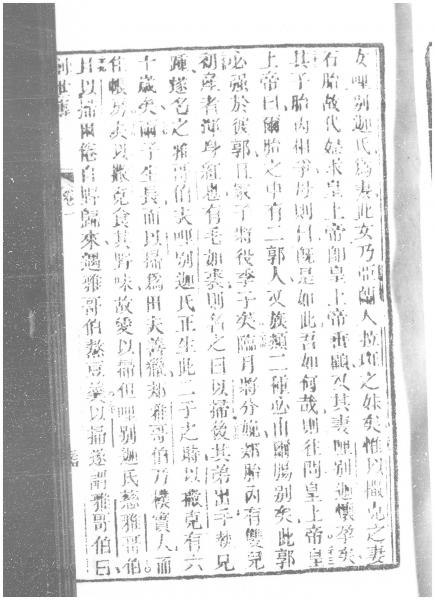 女哩別迦氏爲妻此女乃亞蘭人拉班之妹矣惟以撒克之妻
石胎故代婦求皇上帝卽皇上帝垂顧及其妻哩別迦懷孕矣
其子胎內相爭母則曰旣是如此吾如何哉則往問皇上帝皇
上帝曰爾胎之中有二郭人又族類二種必由爾腸別矣此郭
必强於彼郭且長子將役季子矣臨月將分娩郯胎內有雙兒
初產者渾身紅色有毛如裘則名之曰以掃後其弟出手執兄
踵遂名之雅哥伯夫哩別迦氏正生此二子之時以撒克有六
十歲矣兩子生長而以掃爲田夫善獵郯雅哥伯乃樸實人而
住帳房矣以撒克食其野味故愛以掃但哩別迦氏慈雅哥伯
且以掃困倦自野歸來遇雅哥伯熬豆羹以掃遂謂雅哥伯曰
創世傳 卷一